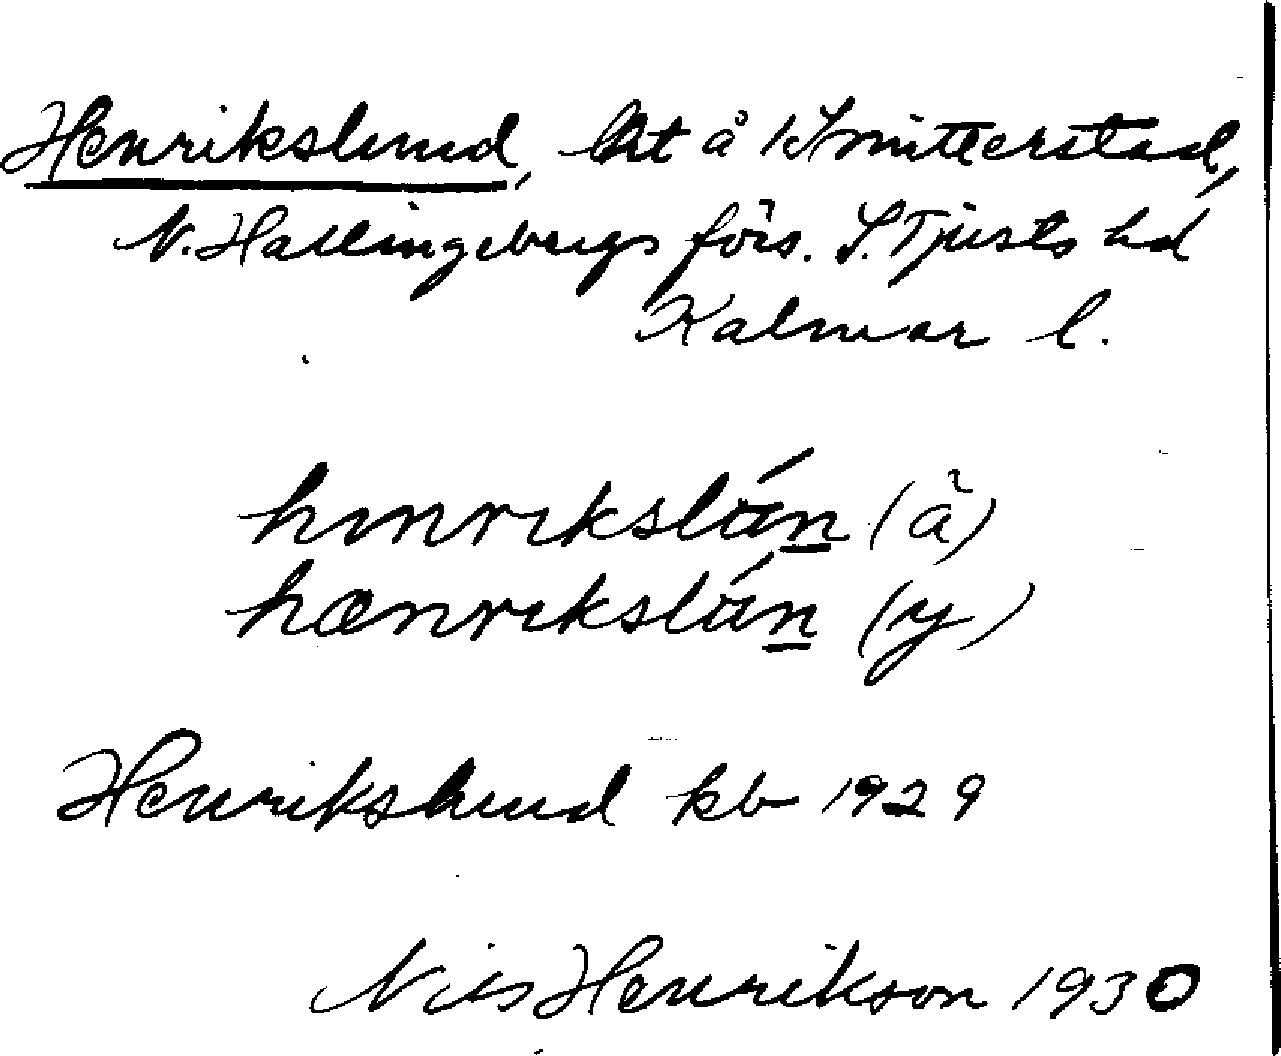 Henrikslund, lht å 1 Smitterstad,
V. Hallingebergs förs. S. Tjusts hd
Kalmar l.
hınrıkslún (ä)
hænrıkslún (y)
Henrikslund kb 1929
Nils Henrikson 1930